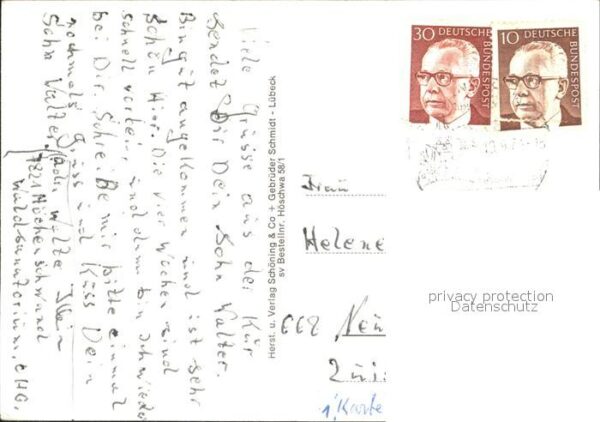 Viele Grüsse aus der Kur
sendet Dir Dein Sohn Valter.
Bin gut angekommen und ist sehr
schön hier. Die vier Wochen sind
schnell vorbei, und dann bin ich wieder
bei Dir. Schreibe mir bitte einmal
nochmals Gruss und Kuss Dein
Sohn Valter.
7821 Höchenschwand
Waldsanatorium,
Herst. u. Verlag Schöning & Co + Gebrüder Schmidt - Lübeck
sv Bestellnr. Höschwa 58/1
30 DEUTSCHE BUNDESPOST
10 DEUTSCHE BUNDESPOST
Frau
Helene
668 Neun
privacy protection
Datenschutz
1 Karte